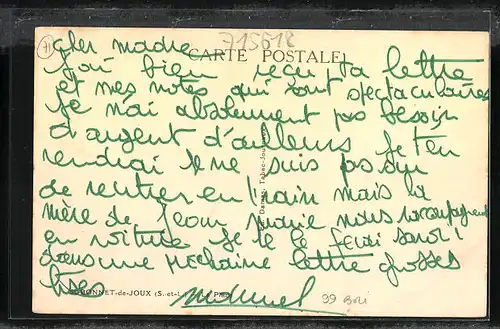 71
715618
CARTE POSTALE
cher madre
j'ai bien reçu ta lettre
et mes notes qui sont spectaculaires
je n'ai absolument pas besoin
d'argent d'ailleurs je t'en
rendrai je ne suis pas
de rentrer en train mais la
mère de Jean Marie nous raccompagnent
en voiture je te le ferai savoir
dans une prochaine lettre grosses
bises
BONNET-de-JOUX (S.-et-L.
39 Bon